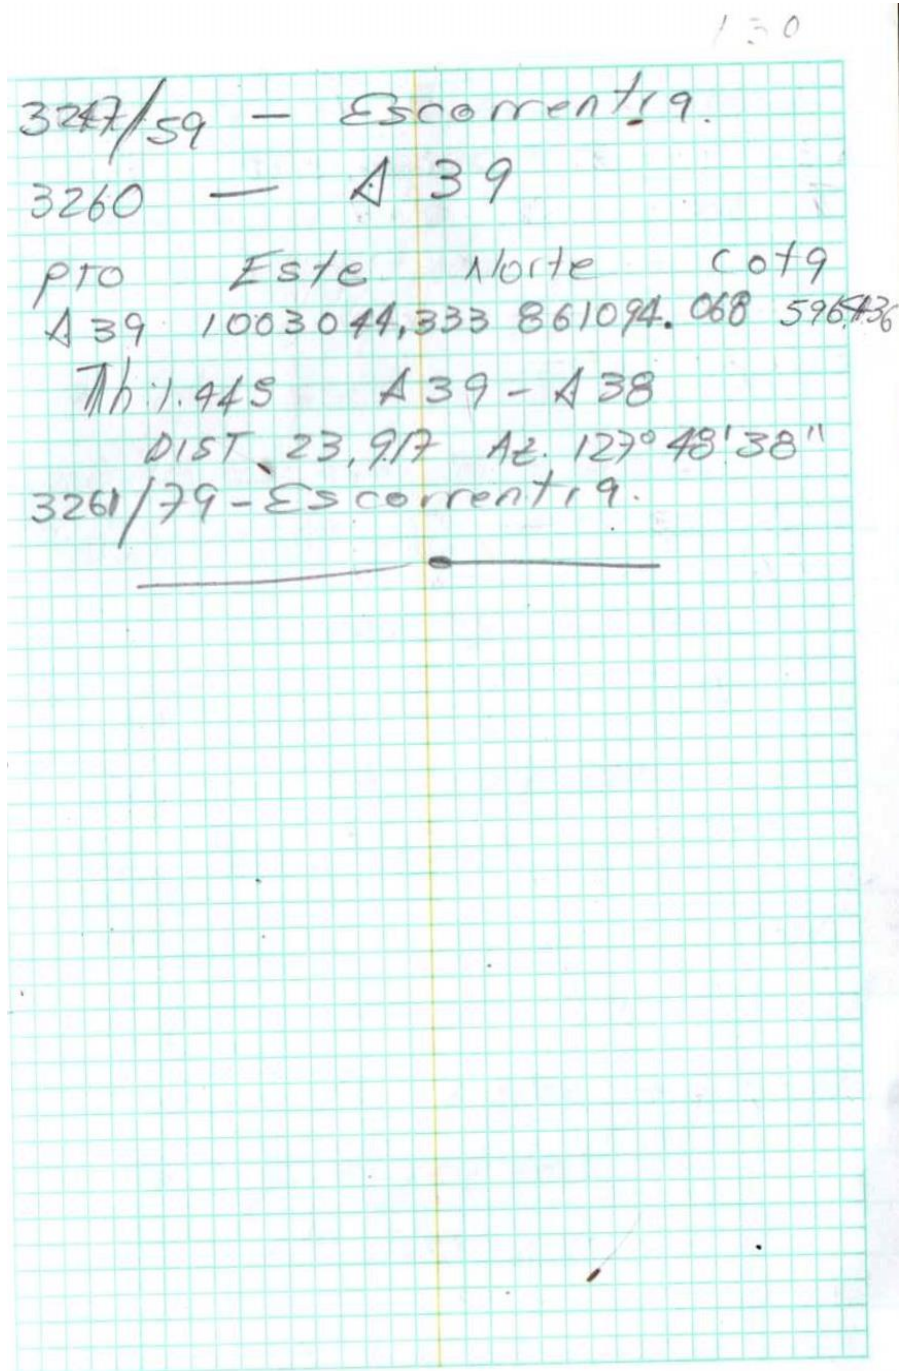 130
3247/59 - Escorrentia.
3260 — A 39
PTO Este Norte Cota
A 39 1003044,333 861094.068 596,436
Ah:1.445 A 39 - A 38
DIST. 23,917 Az. 127° 48' 38"
3261/79 - Escorrentia.